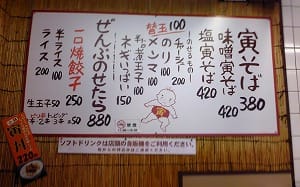 寅そば 380
味噌寅そば 420
塩寅そば 420
のせるもの
チャーシュー 200
のり 100
メンマ 100
替玉 100
半煮玉子 100
ネギいっぱい 150
ぜんぶのせたら 880
一口焼餃子 250
半ライス 100
ライス 200
生玉子50
ソフトドリンクは店頭の自販機をご利用ください。
220